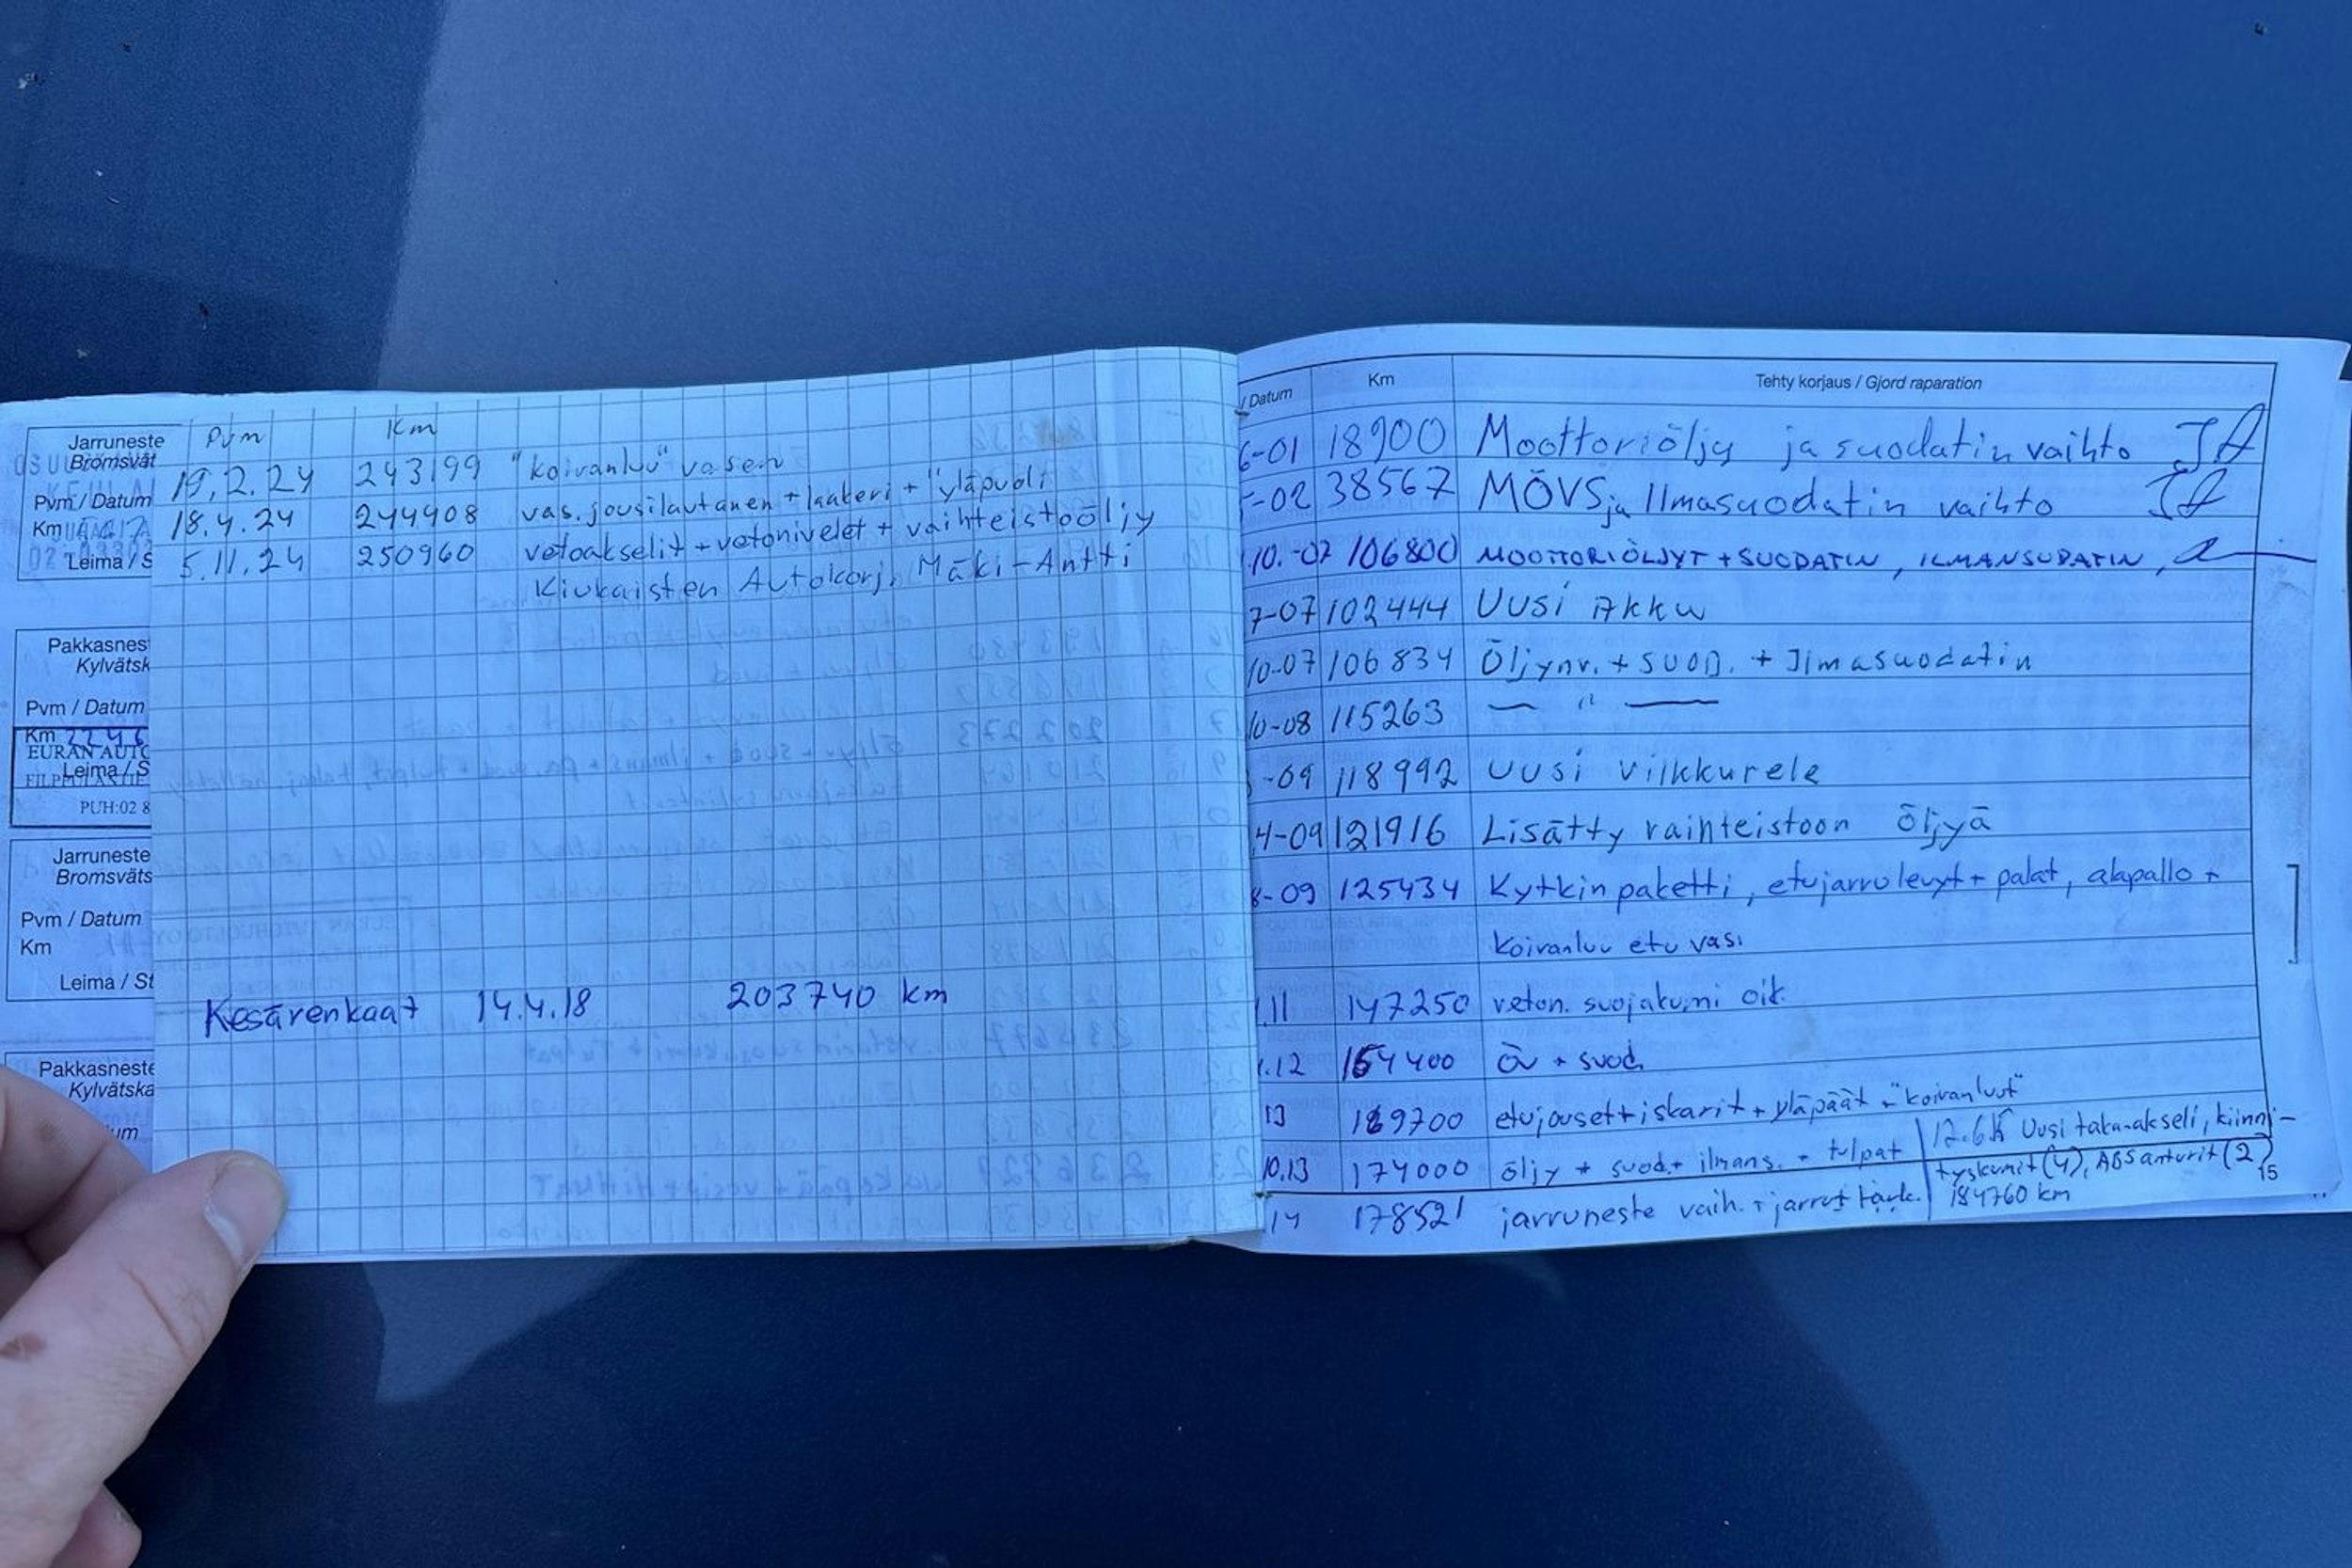 Jarruneste
Bromsvät
Pvm / Datum
Km
Leima / S
Pakkasnest
Kylvätsk
Pvm / Datum
Km 2246
EURAN AUTO
Leima / S
EILPPULANTIE
PUH:02 8
Jarruneste
Bromsväts
Pvm / Datum
Km
Leima / St
Pakkasneste
Kylvätska
um
Pvm Km
19.2.24 243199 "koivanluu" vasen
18.4.24 244908 vas. jousilautanen + laakeri + "yläpuoli
5.11.24 250960 vetoakselit + vetonivelet + vaihteistoöljy
Kiukaisten Autokorj. Mäki-Antti
Kesärenkaat 14.4.18 203740 km
/ Datum Km Tehty korjaus / Gjord raparation
6-01 18900 Moottoriöljy ja suodatin vaihto
-02 38567 MÖVS ja Ilmasuodatin vaihto
10.-07 106800 MOOTTORIÖLJYT + SUODATIN, ILMANSUDATIN,
7-07 102444 Uusi Akku
10-07 106834 Öljynv. + suod. + Ilmasuodatin
10-08 115263 — " —
-09 118992 Uusi vilkkurele
4-09 121916 Lisätty vaihteistoon öljyä
8-09 125434 Kytkinpaketti, etujarrulevyt + palat, alapallo +
koivanluu etu vas.
.11 147250 veton. suojakumi oik.
.12 154400 öv + suod.
13 169700 etujouset + iskarit + yläpäät + "koivanluut"
10.13 174000 öljy + suod. + ilmans. + tulpat
14 178521 jarruneste vaih. + jarrut tark.
12.6.15 Uusi taka-akseli, kiinni-
tyskumit (4), ABS anturit (2)
184760 km
15